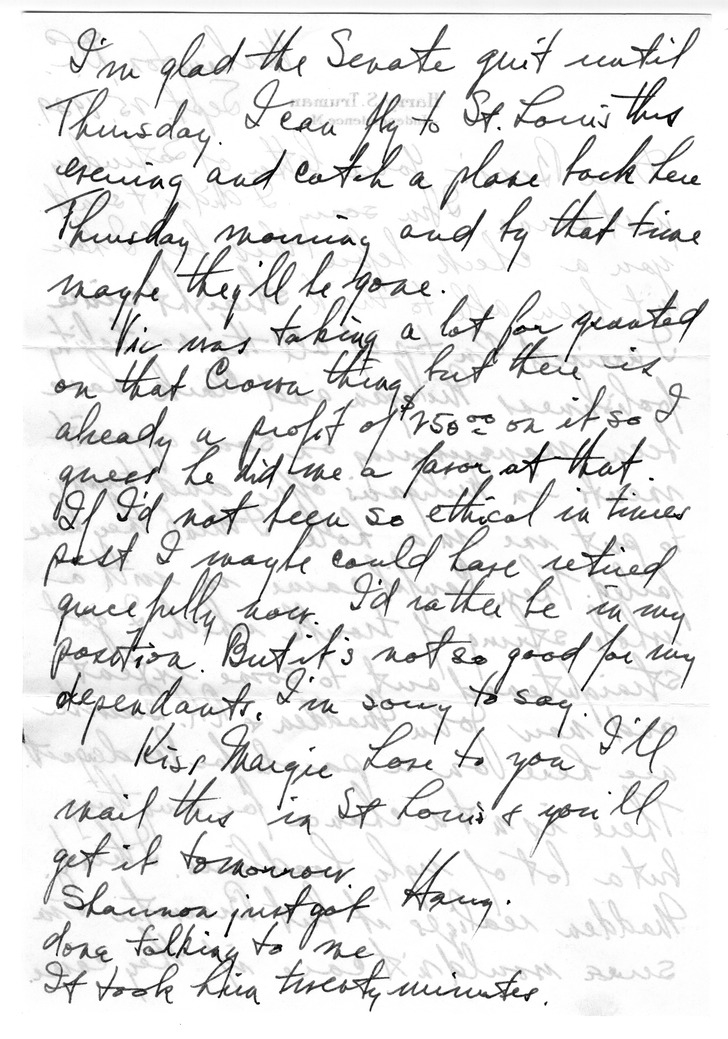 I'm glad the Senate quit until
Thursday. I can fly to St. Louis this
evening and catch a plane back here
Thursday morning and by that time
maybe they'll be gone.
Vic was taking a lot for granted
on that Crown thing but there is
already a profit of $250 00 on it so I
guess he did me a favor at that.
If I'd not been so ethical in times
past I maybe could have retired
gracefully now. I'd rather be in my
position. But it's not so good for my
dependants, I'm sorry to say.
Kiss Margie Love to you I'll
mail this in St Louis & you'll
get it tomorrow
Harry.
Shannon just got
done talking to me
It took him twenty minutes.